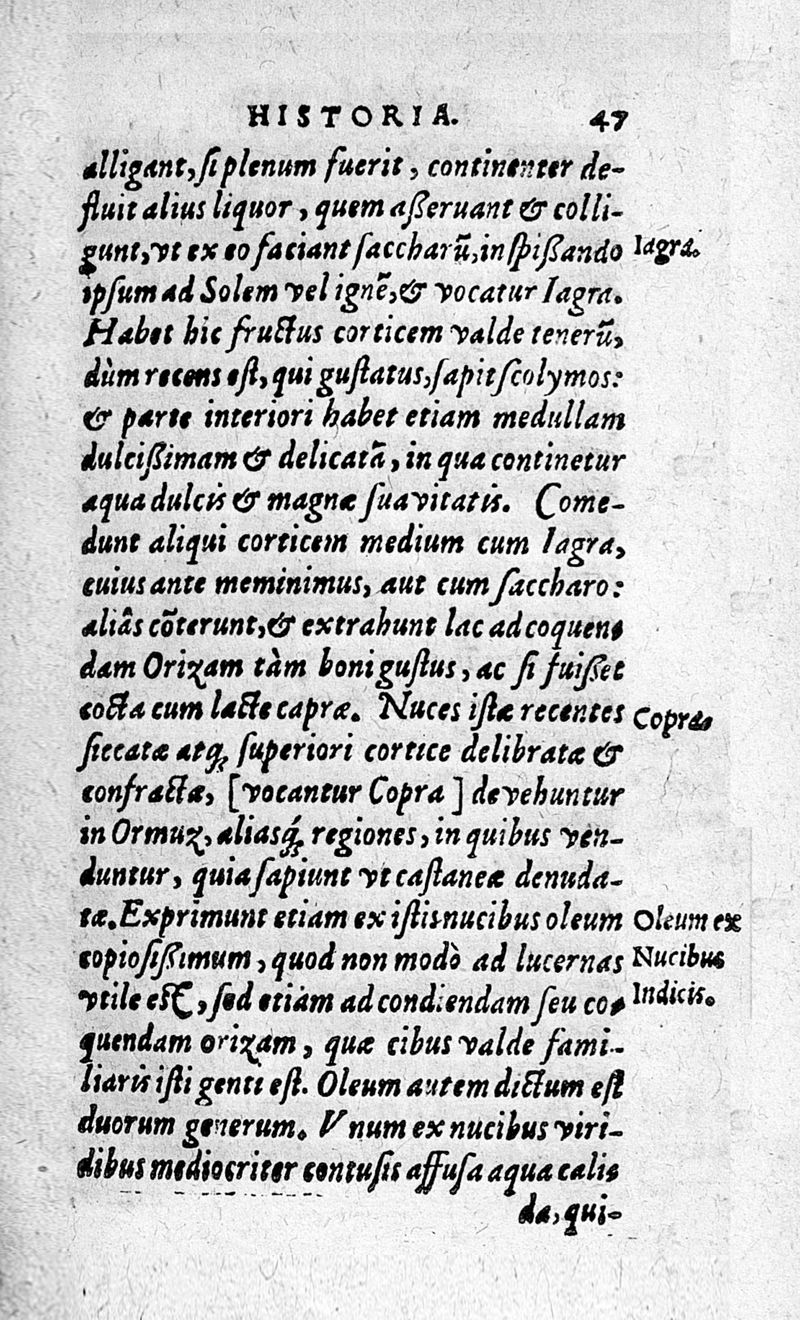 HISTORIA. 47
alligant, si plenum fuerit, continenter de-
fluit alius liquor, quem aßeruant & colli-
gunt, vt ex eo faciant saccharũ, inspißando Iagra.
ipsum ad Solem vel ignẽ, & vocatur Iagra.
Habet hic fructus corticem valde tenerũ,
dùm recens est, qui gustatus, sapit scolymos:
& parte interiori habet etiam medullam
dulcißimam & delicatã, in qua continetur
aqua dulcis & magnæ suavitatis. Come-
dunt aliqui corticem medium cum Iagra,
cuius ante meminimus, aut cum saccharo:
aliâs cõterunt, & extrahunt lac ad coquen-
dam Orizam tàm boni gustus, ac si fuißet
cocta cum lacte capræ. Nuces istæ recentes Copra.
siccatæ atq; superiori cortice delibratæ &
confractæ, [vocantur Copra] devehuntur
in Ormuz, aliasq́; regiones, in quibus ven-
duntur, quia sapiunt vt castaneæ denuda-
tæ. Exprimunt etiam ex istis nucibus oleum Oleum ex
copiosißimum, quod non modò ad lucernas Nucibus
vtile est, sed etiam ad condiendam seu co- Indicis.
quendam orizam, quæ cibus valde fami-
liaris isti genti est. Oleum autem dictum est
duorum generum. Vnum ex nucibus viri-
dibus mediocriter contusis affusa aqua cali-
da, qui-